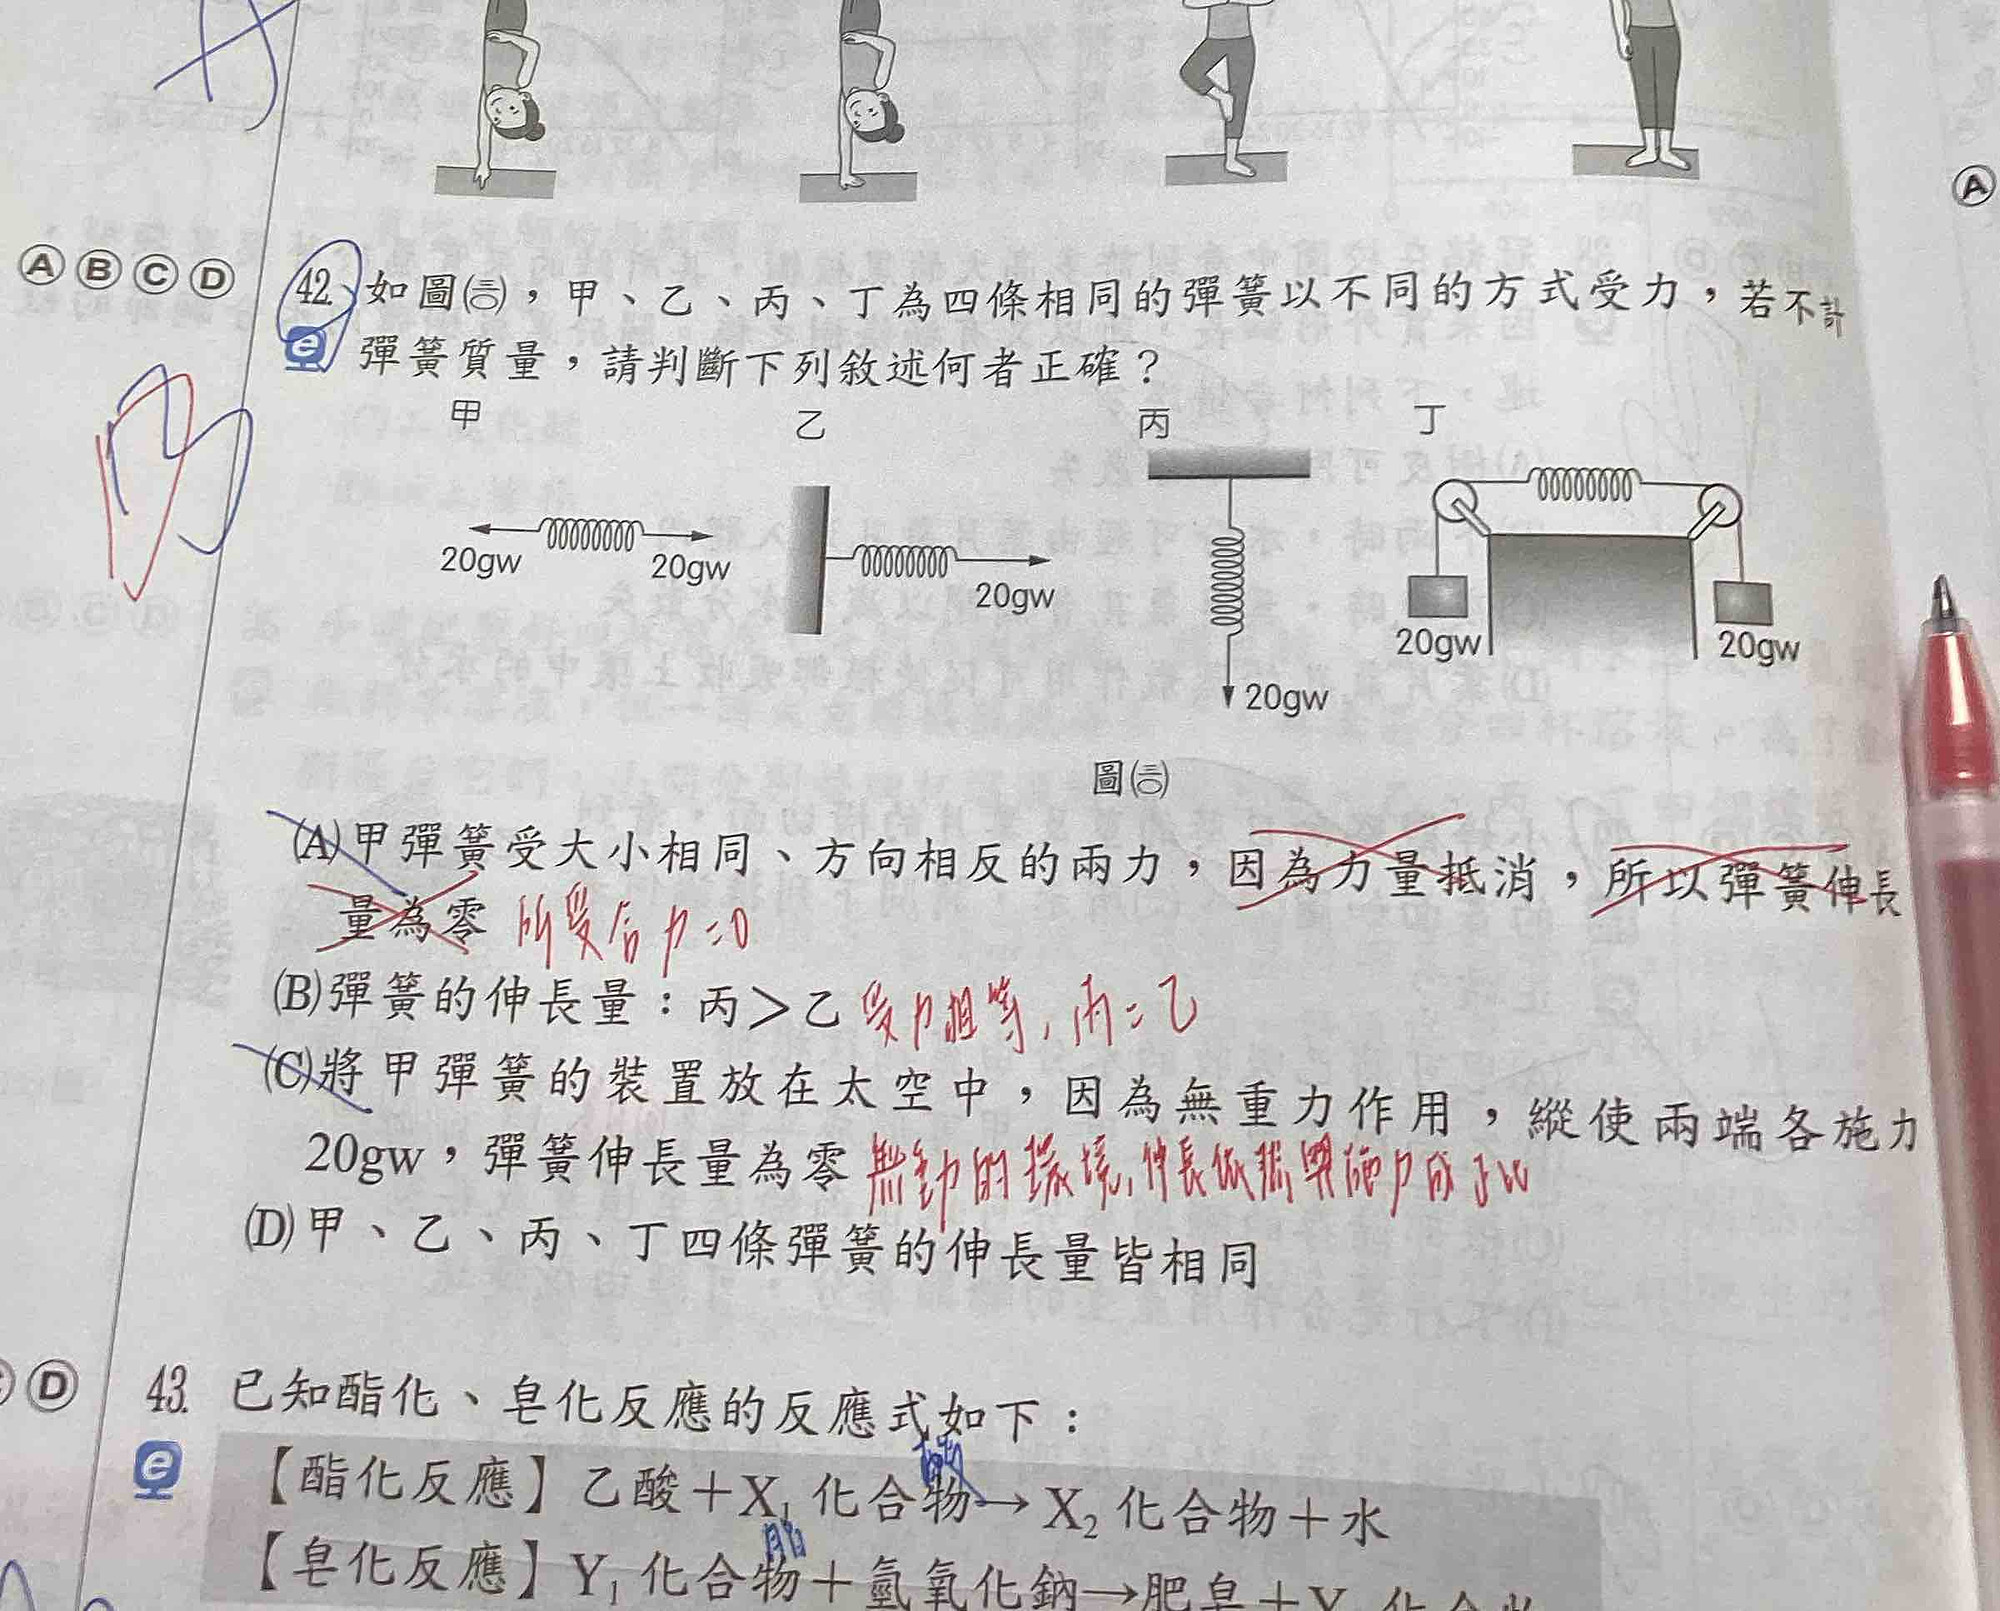 Ⓐ
Ⓐ Ⓑ Ⓒ Ⓓ
42. 如圖(三),甲、乙、丙、丁為四條相同的彈簧以不同的方式受力,若不計
e 彈簧質量,請判斷下列敘述何者正確?
甲 乙 丙 丁
20gw 20gw 20gw 20gw 20gw 20gw
圖(三)
(A)甲彈簧受大小相同、方向相反的兩力,因為力量抵消,所以彈簧伸長
量為零 所受合力=0
(B)彈簧的伸長量:丙>乙 受力相等,丙=乙
(C)將甲彈簧的裝置放在太空中,因為無重力作用,縱使兩端各施力
20gw,彈簧伸長量為零 無重力的環境,伸長依然與施力成正比
(D)甲、乙、丙、丁四條彈簧的伸長量皆相同
Ⓓ 43. 已知酯化、皂化反應的反應式如下:
e
【酯化反應】乙酸+X₁ 化合物→X₂ 化合物+水
【皂化反應】Y₁ 化合物+氫氧化鈉→肥皂+Y 化合物